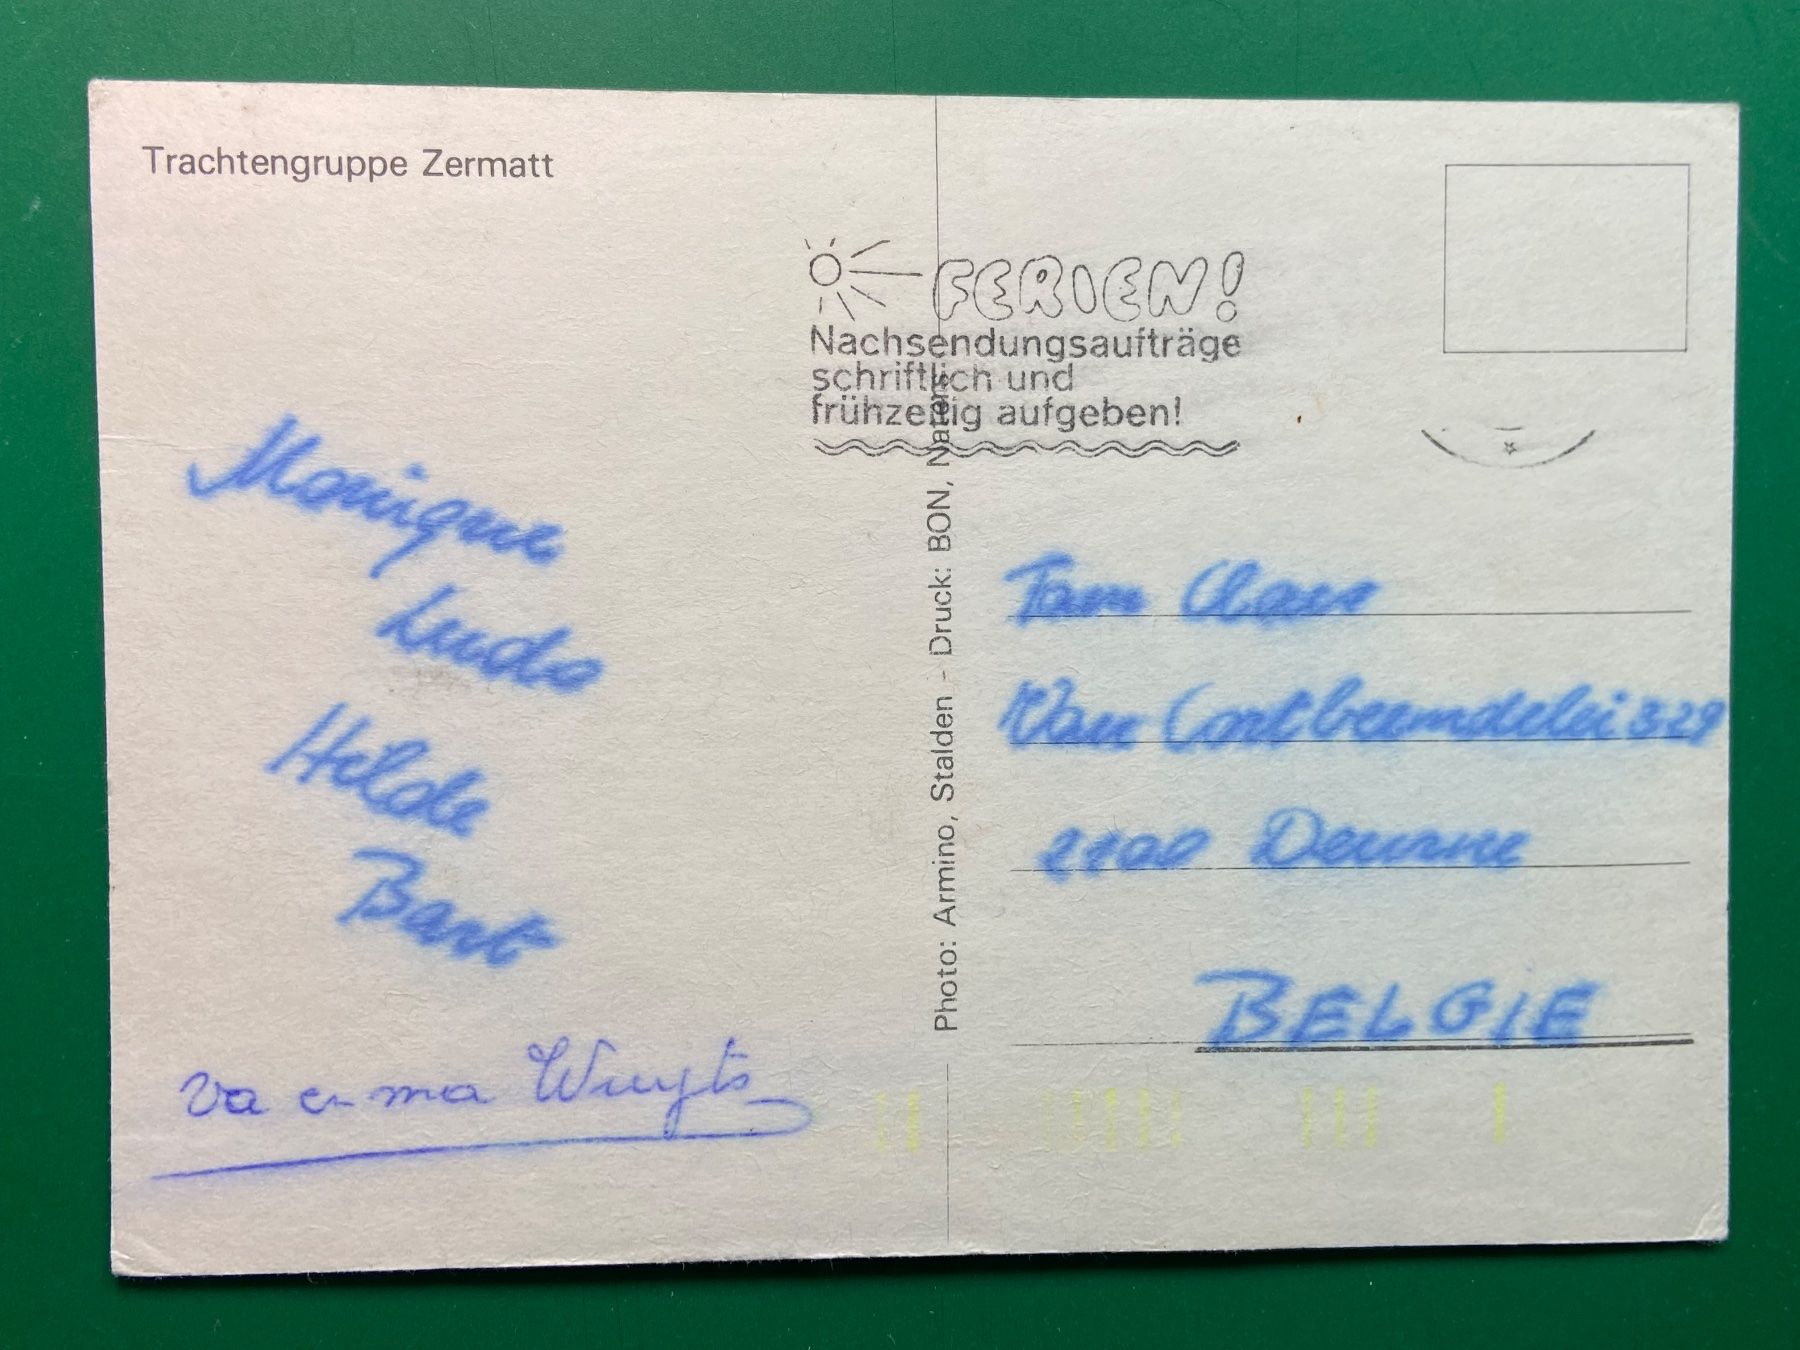 Trachtengruppe Zermatt
FERIEN!
Nachsendungsaufträge
schriftlich und
frühzeitig aufgeben!
Monique
Ludo
Hilde
Bart
va en ma Wuyts
Photo: Armino, Stalden - Druck: BON, Naters
Fam Claes
Van Cortbeemdelei 329
2100 Deurne
BELGIE